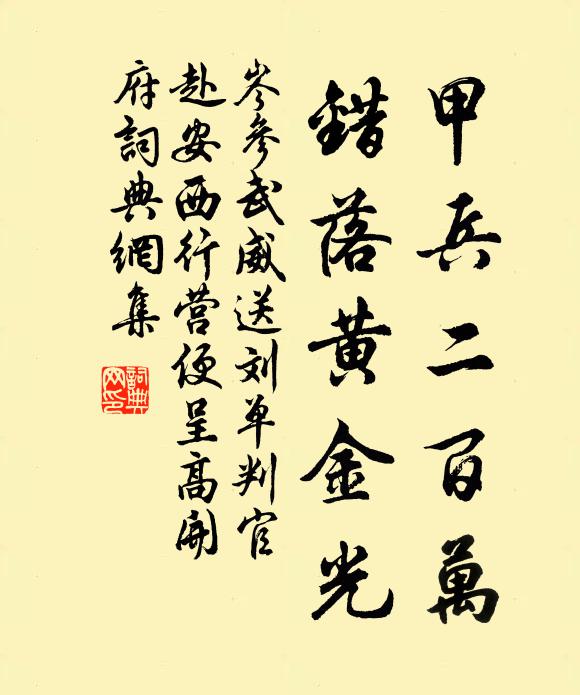 甲兵二百萬
錯落黄金光
岑參武威送刘单判官
赴安西行营便呈高開
府詞典網集
詞典网印